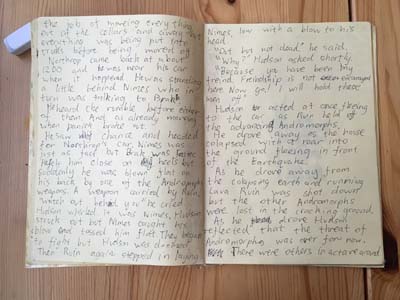 the job of moveing everything
out of the cellars and away that
everything was being put into
trucks before being moved off
Northrop came back at about
1200 and
it happened. He was standing
a little behind Nimes who in
turn was talking to Brak
He heard the rumble before either
of them. And as already moveing
when panick broke out.
He saw chance and headed
for Northrop's car. Nimes was
just as fast. But Brak was faster
him close on heels but
suddenly he was blown flat on
his back by one of the Andromorph
weapons. A weapon carried by Ruin,
"watch out behind you" he cried
Hudson whirled it was Nimes, Hudson
struck out but Nimes caught his
blow and tossed him flat. They began
to fight but Hudson was
Then Ruin again stepped in laying
Nimes, low with a blow to his
head.
"Out but not dead" he said.
"Why?" Hudson asked shortly.
"Because you have been my
friend. Friendship is not encouraged
here. Now go! I will hold these
men off."
Hudson acted at once fleeing
to the car as Ruin held of
the advancing Andromorphs.
He drove away as the house
colapsed with a roar into
the ground fleeing in front
of the Earthquake.
As he drove away from
the colapsing earth and running
Lava Ruin was shot down
but the other Andromorphs
were lost in the craching ground.
As he drove Hudson
reflected that the threat of
Andromorphs was over for now.
There were others in